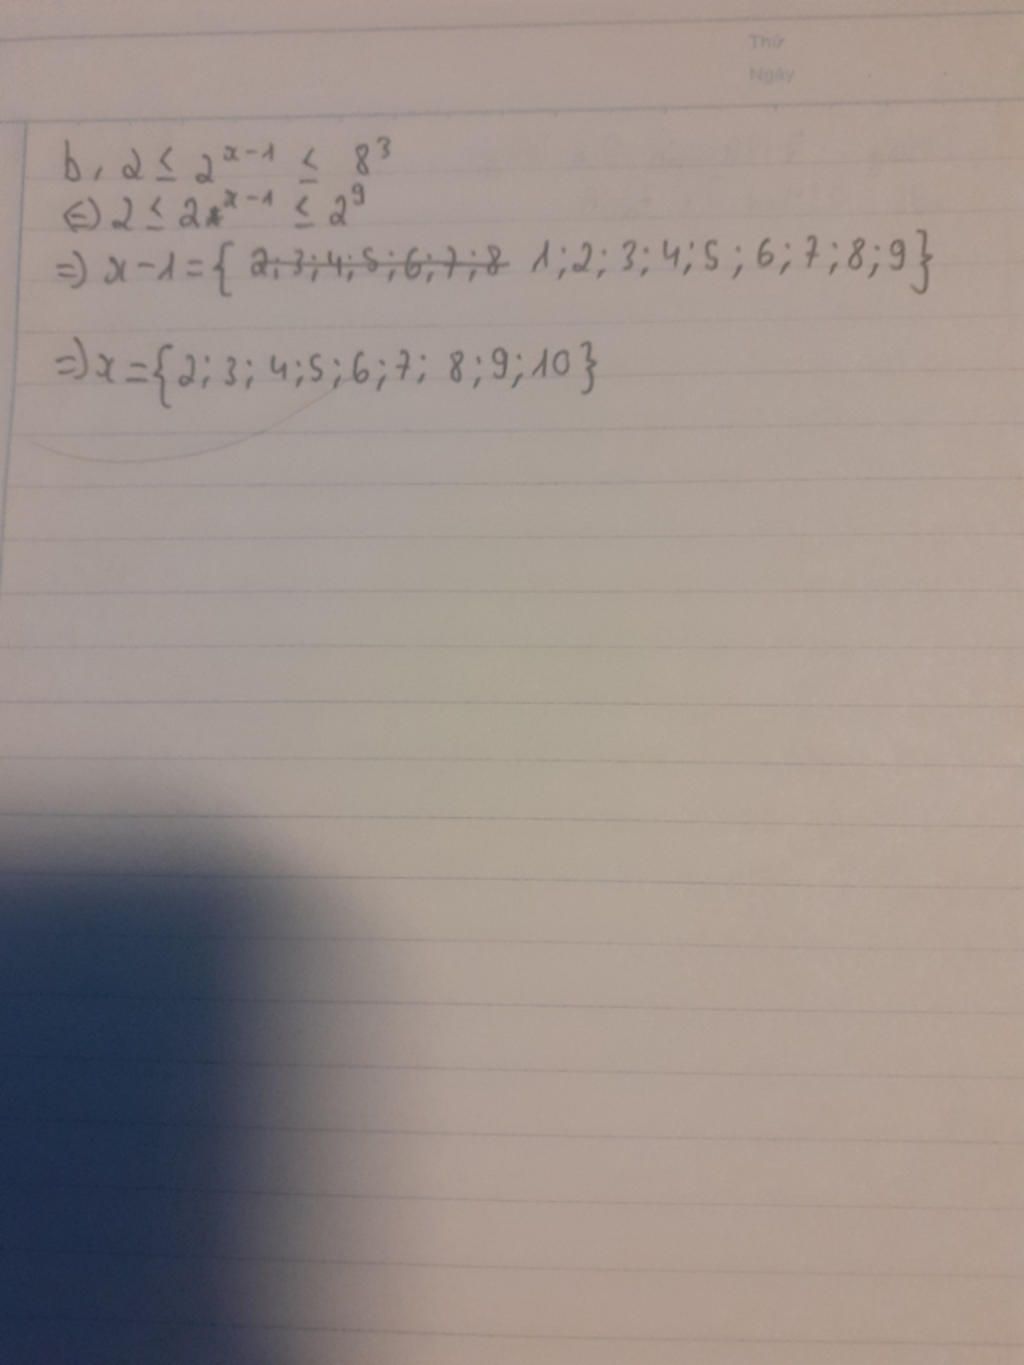 Thứ
Ngày
b, 2 ≤ 2^{x-1} ≤ 8^3
⇔ 2 ≤ 2^{x-1} ≤ 2^9
=) x-1={ 2;3;4;5;6;7;8 1;2;3;4;5;6;7;8;9}
=) x={2;3;4;5;6;7;8;9;10}